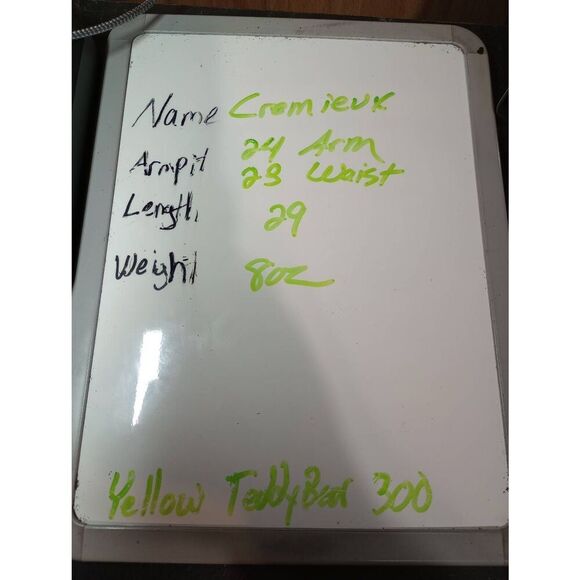 Name Cremieux
Armpit 24 Arm
23 Waist
Length 29
Weight 8oz
Yellow TeddyBear 300